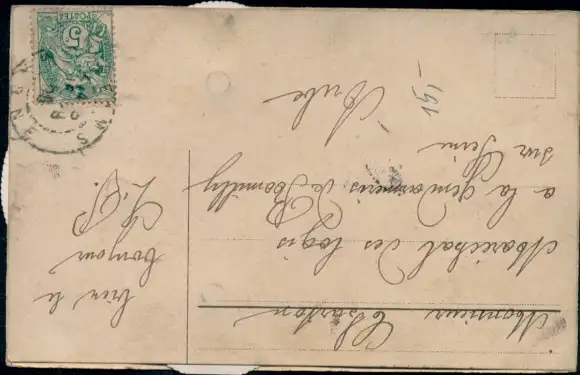 Monsieur Charton
Marechal des logis
a la gendarmerie de Romilly
sur Seine
Aube
191
bien le
bonjour
L. P.
5
POSTES